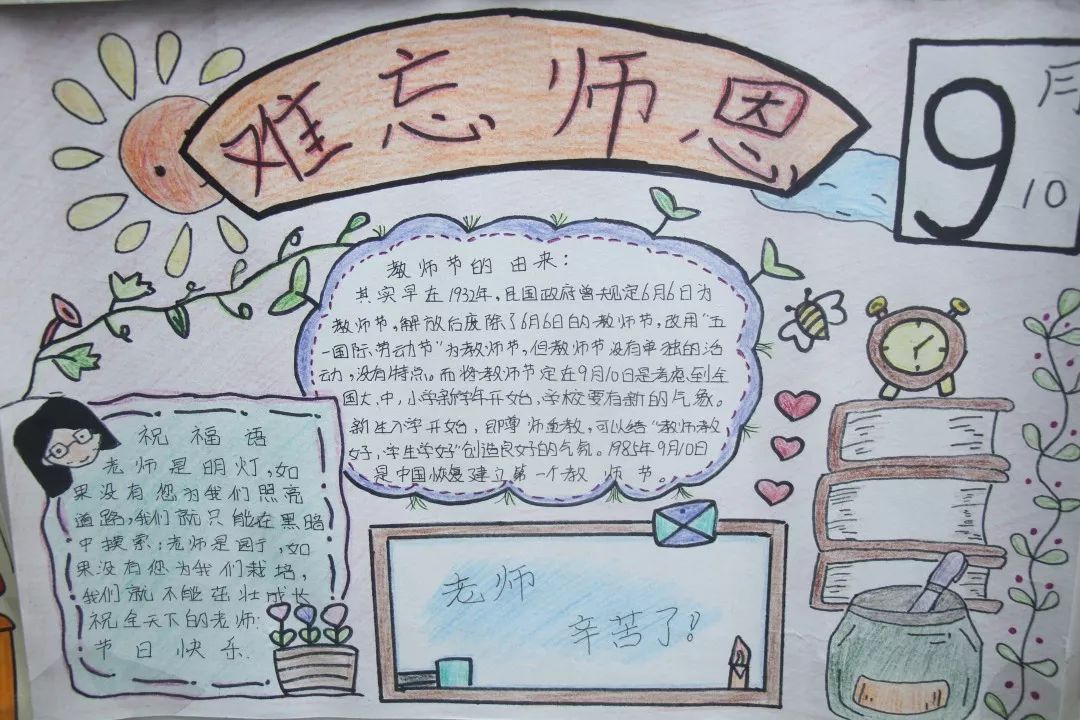 难忘师恩
9
月
10
教师节的由来:
其实早在1932年,民国政府曾规定6月6日为
教师节,解放后废除了6月6日的教师节,改用“五
一国际劳动节”为教师节,但教师节没有单独的活
动,没有特点。而将教师节定在9月10日是考虑到全
国大、中,小学新学年开始,学校要有新的气象。
新生入学开始,即尊师重教,可以给“教师教
好,学生学好”创造良好的气氛。1985年9月10日
是中国恢复建立第一个教师节。
祝福语
老师是明灯,如
果没有您为我们照亮
道路,我们就只能在黑暗
中摸索;老师是园丁,如
果没有您为我们栽培,
我们就不能茁壮成长
祝全天下的老师:
节日快乐.
老师
辛苦了!